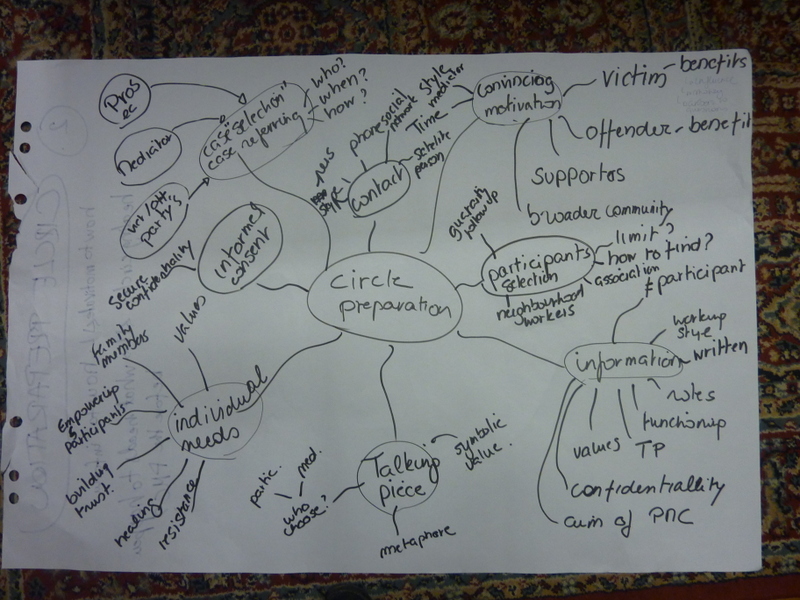 Pros
ec
Mediator
vict/off
party's
"case selection"
case referring
who?
when?
how?
phone
social
network
style
mediator
Time
satelite
person
contact
convincing
motivation
victim - benefits
offender - benefit
supportes
broader community
informed
consent
secure
confidentiality
circle
preparation
guaranty
follow up
participants
selection
limit?
how to find?
association
neighbourhood
workers
≠ participant
information
workup
style
written
roles
functionup
TP
values
confidentiallity
aim of PMC
values
family
mumbers
Empowering
participants
building
trust
healing
resistance
individual
needs
Talking
piece
symbolic
value.
partic.
med.
who
choose?
metaphore
2.
CIRCLE PREPARATION